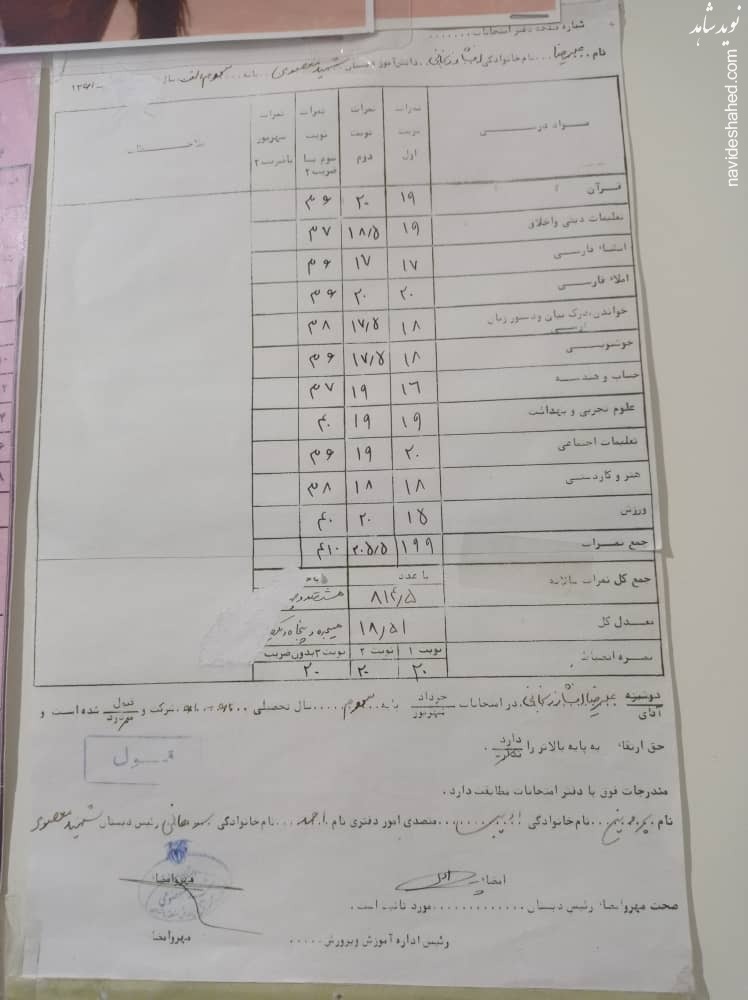 نوید شاهد
navideshahed.com
شماره صفحه دفتر امتحانات
نام علیرضا نام خانوادگی دانش آموز دبستان شهید معصومی پایه سوم الف سال
مواد درسی
نمرات نوبت اول
نمرات نوبت دوم
نمرات نوبت سوم با ضریب ۲
نمرات شهریور با ضریب ۲
ملاحظات
قرآن ۱۹ ۲۰ ۳۶
تعلیمات دینی واخلاق ۱۹ ۱۸/۵ ۳۷
انشاء فارسی ۱۷ ۱۷ ۳۶
املاء فارسی ۲۰ ۲۰ ۳۶
خواندن،درک بیان ودستور زبان فارسی ۱۸ ۱۷/۵ ۳۸
خوشنویسی ۱۸ ۱۷/۵ ۳۶
حساب و هندسه ۱۶ ۱۹ ۳۷
علوم تجربی و بهداشت ۱۹ ۱۹ ۴۰
تعلیمات اجتماعی ۲۰ ۱۹ ۳۶
هنر و کاردستی ۱۸ ۱۸ ۳۸
ورزش ۱۵ ۲۰ ۴۰
جمع نمرات ۱۹۹ ۲۰۵/۵ ۴۱۰
جمع کل نمرات سالانه با عدد ۸۱۴/۵
معدل کل ۱۸/۵۱ هیجده و پنجاه و یک
نمره انضباط نوبت ۱ نوبت ۲ نوبت ۳ بدون ضریب
۲۰ ۲۰ ۲۰
دوشیزه آقای علیرضا در امتحانات خرداد شهریور پایه سوم سال تحصیلی شرکت و قبول مردود شده است و
حق ارتقاء به پایه بالاتر را دارد ندارد .
قبول
مندرجات فوق با دفتر امتحانات مطابقت دارد .
نام نام خانوادگی متصدی امور دفتری نام احمد نام خانوادگی رئیس دبستان شهید معصومی
امضاء
مهروامضاء
صحت مهروامضاء رئیس دبستان مورد تائید است .
رئیس اداره آموزش وپرورش
مهروامضاء